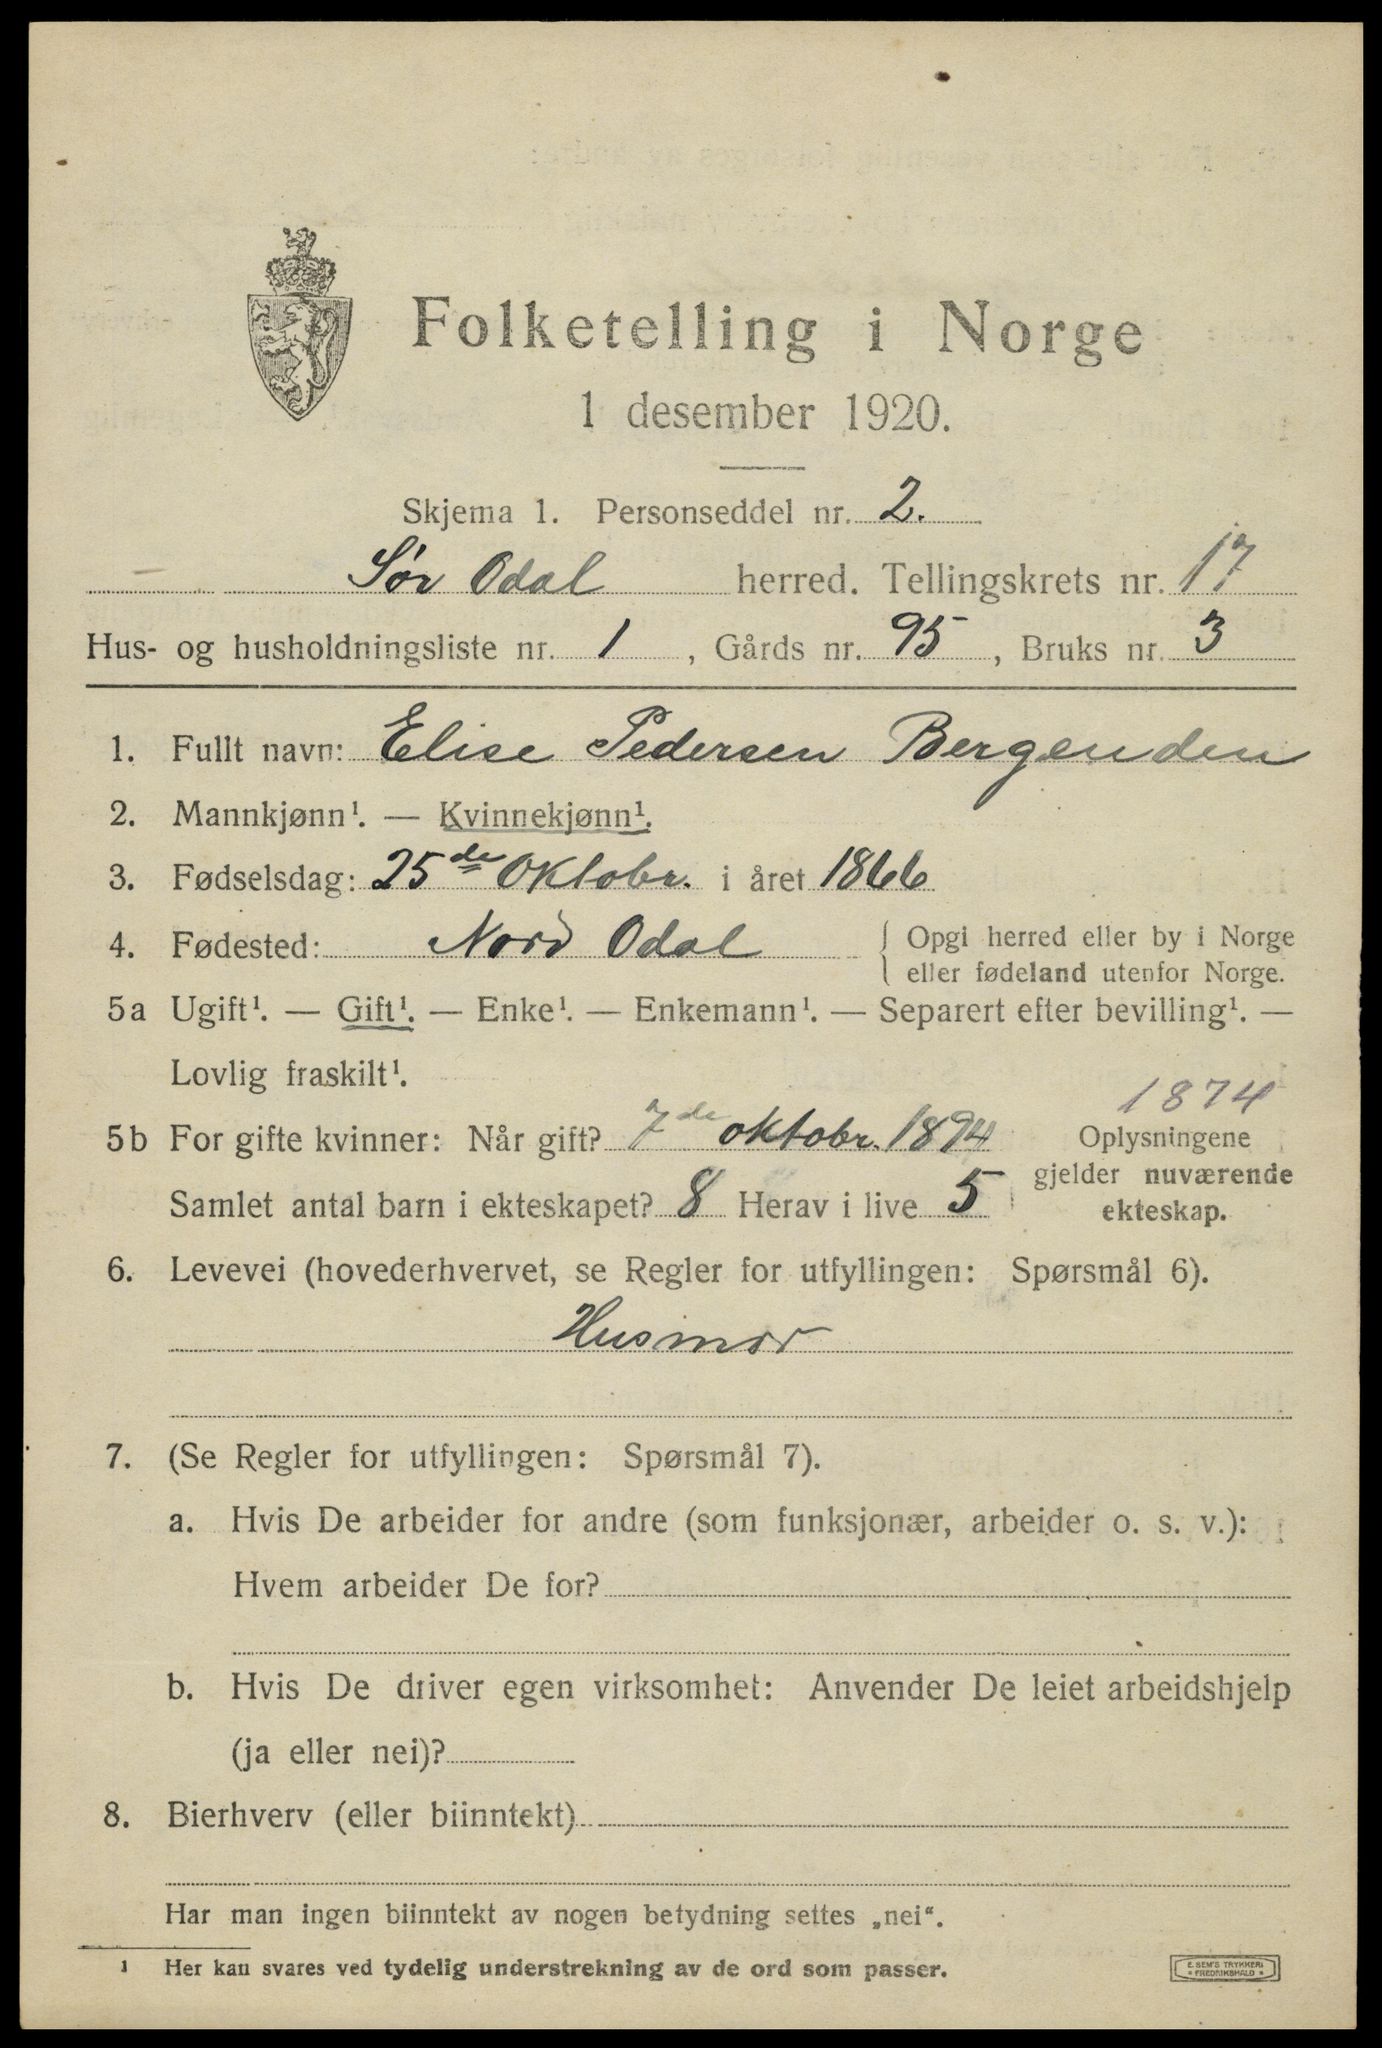 Folketelling i Norge
1 desember 1920.
Skjema 1. Personseddel nr. 2.
Sør Odal herred. Tellingskrets nr. 17
Hus- og husholdningsliste nr. 1, Gårds nr. 95, Bruks nr. 3
1. Fullt navn: Elise Pedersen Bergenden
2. Mannkjønn¹. — Kvinnekjønn¹.
3. Fødselsdag: 25de Oktobr. i året 1866
4. Fødested: Nord Odal { Opgi herred eller by i Norge
eller fødeland utenfor Norge.
5a Ugift¹. — Gift¹. — Enke¹. — Enkemann¹. — Separert efter bevilling¹. —
Lovlig fraskilt¹.
1874
5b For gifte kvinner: Når gift? 7de oktobr. 1894 Oplysningene
gjelder nuværende
Samlet antal barn i ekteskapet? 8 Herav i live 5 ekteskap.
6. Levevei (hovederhvervet, se Regler for utfyllingen: Spørsmål 6).
Husmor
7. (Se Regler for utfyllingen: Spørsmål 7).
a. Hvis De arbeider for andre (som funksjonær, arbeider o. s. v.):
Hvem arbeider De for?
b. Hvis De driver egen virksomhet: Anvender De leiet arbeidshjelp
(ja eller nei)?
8. Bierhverv (eller biinntekt)
Har man ingen biinntekt av nogen betydning settes „nei“.
¹ Her kan svares ved tydelig understrekning av de ord som passer.
E. SEM'S TRYKKERI
* FREDRIKSHALD *